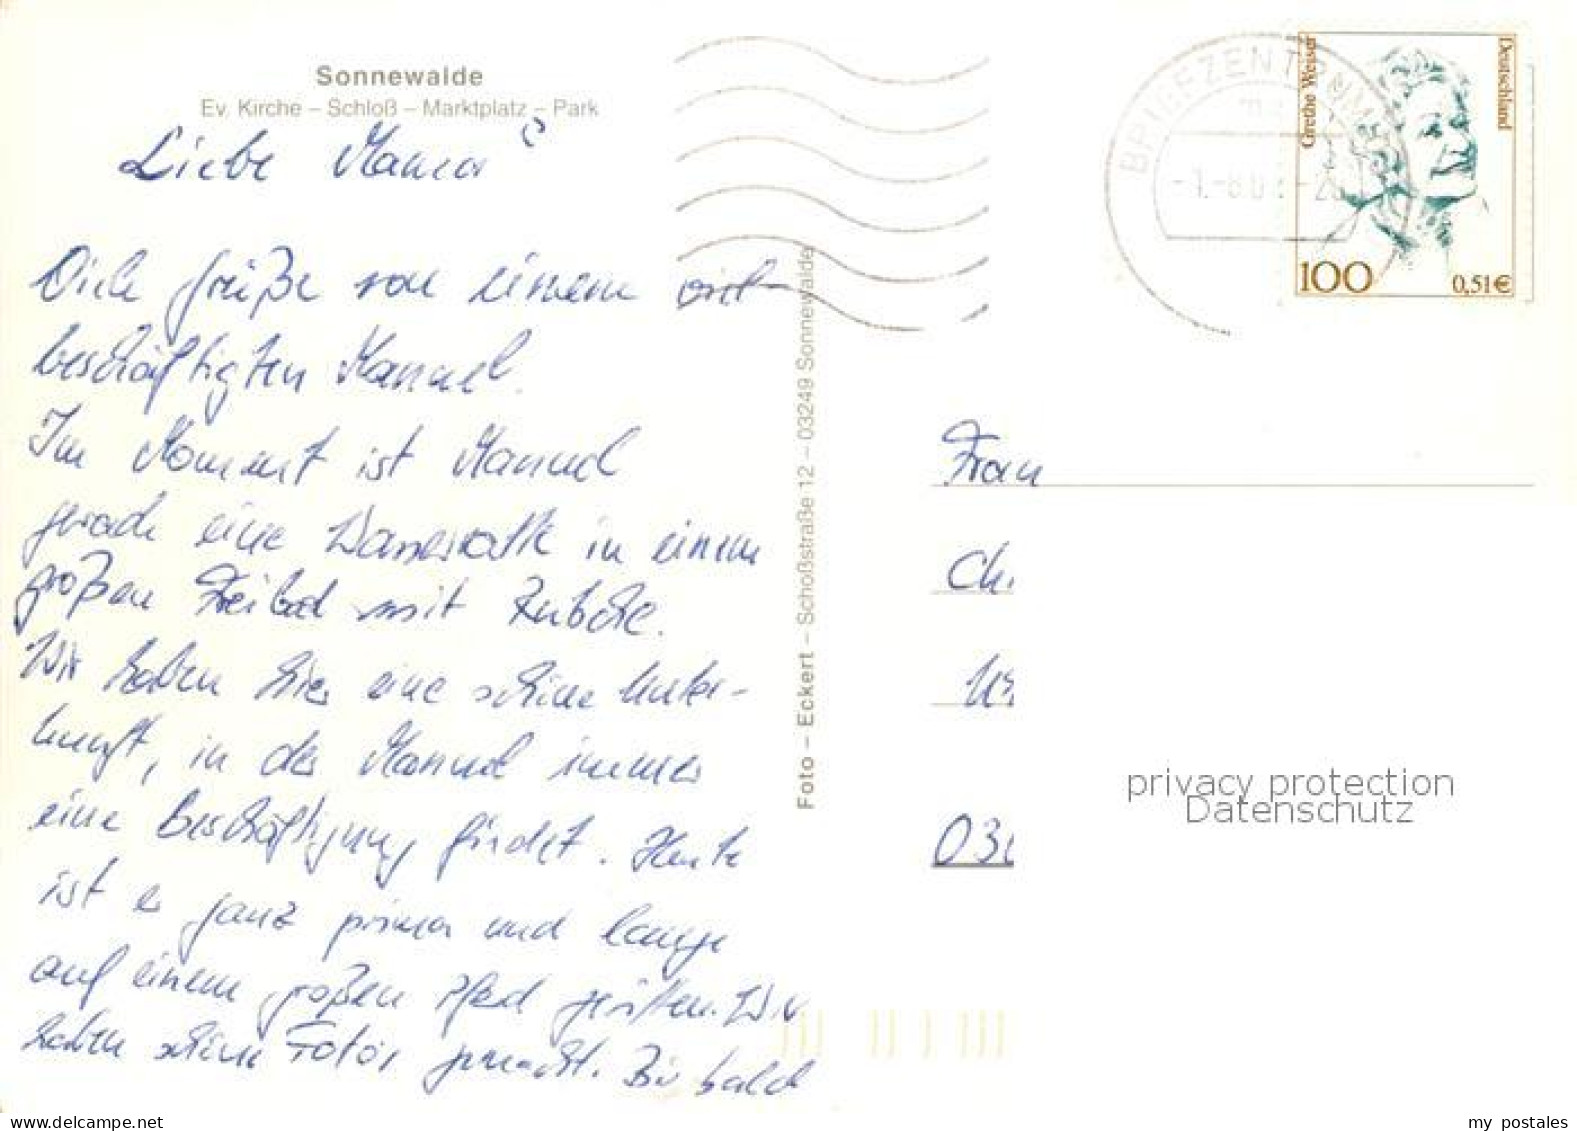 Sonnewalde
Ev. Kirche – Schloß – Marktplatz – Park
Liebe Mama
Dich grüße von einem viel
beschäftigten Manuel.
Im Moment ist Manuel
gerade eine Wasserratte in einem
großen Freibad mit Rutsche.
Wir haben hier eine schöne Unter-
kunft, in der Manuel immer
eine Beschäftigung findet. Heute
ist er ganz prima und lange
auf einem großen Pferd geritten. Wir
haben schöne Foto's gemacht. Bis bald
Foto – Eckert – Schoßstraße 12 – 03249 Sonnewalde
BRIEFZENTRUM
Grethe Weiser
Deutschland
100
0,51€
Frau
privacy protection
Datenschutz
my postales